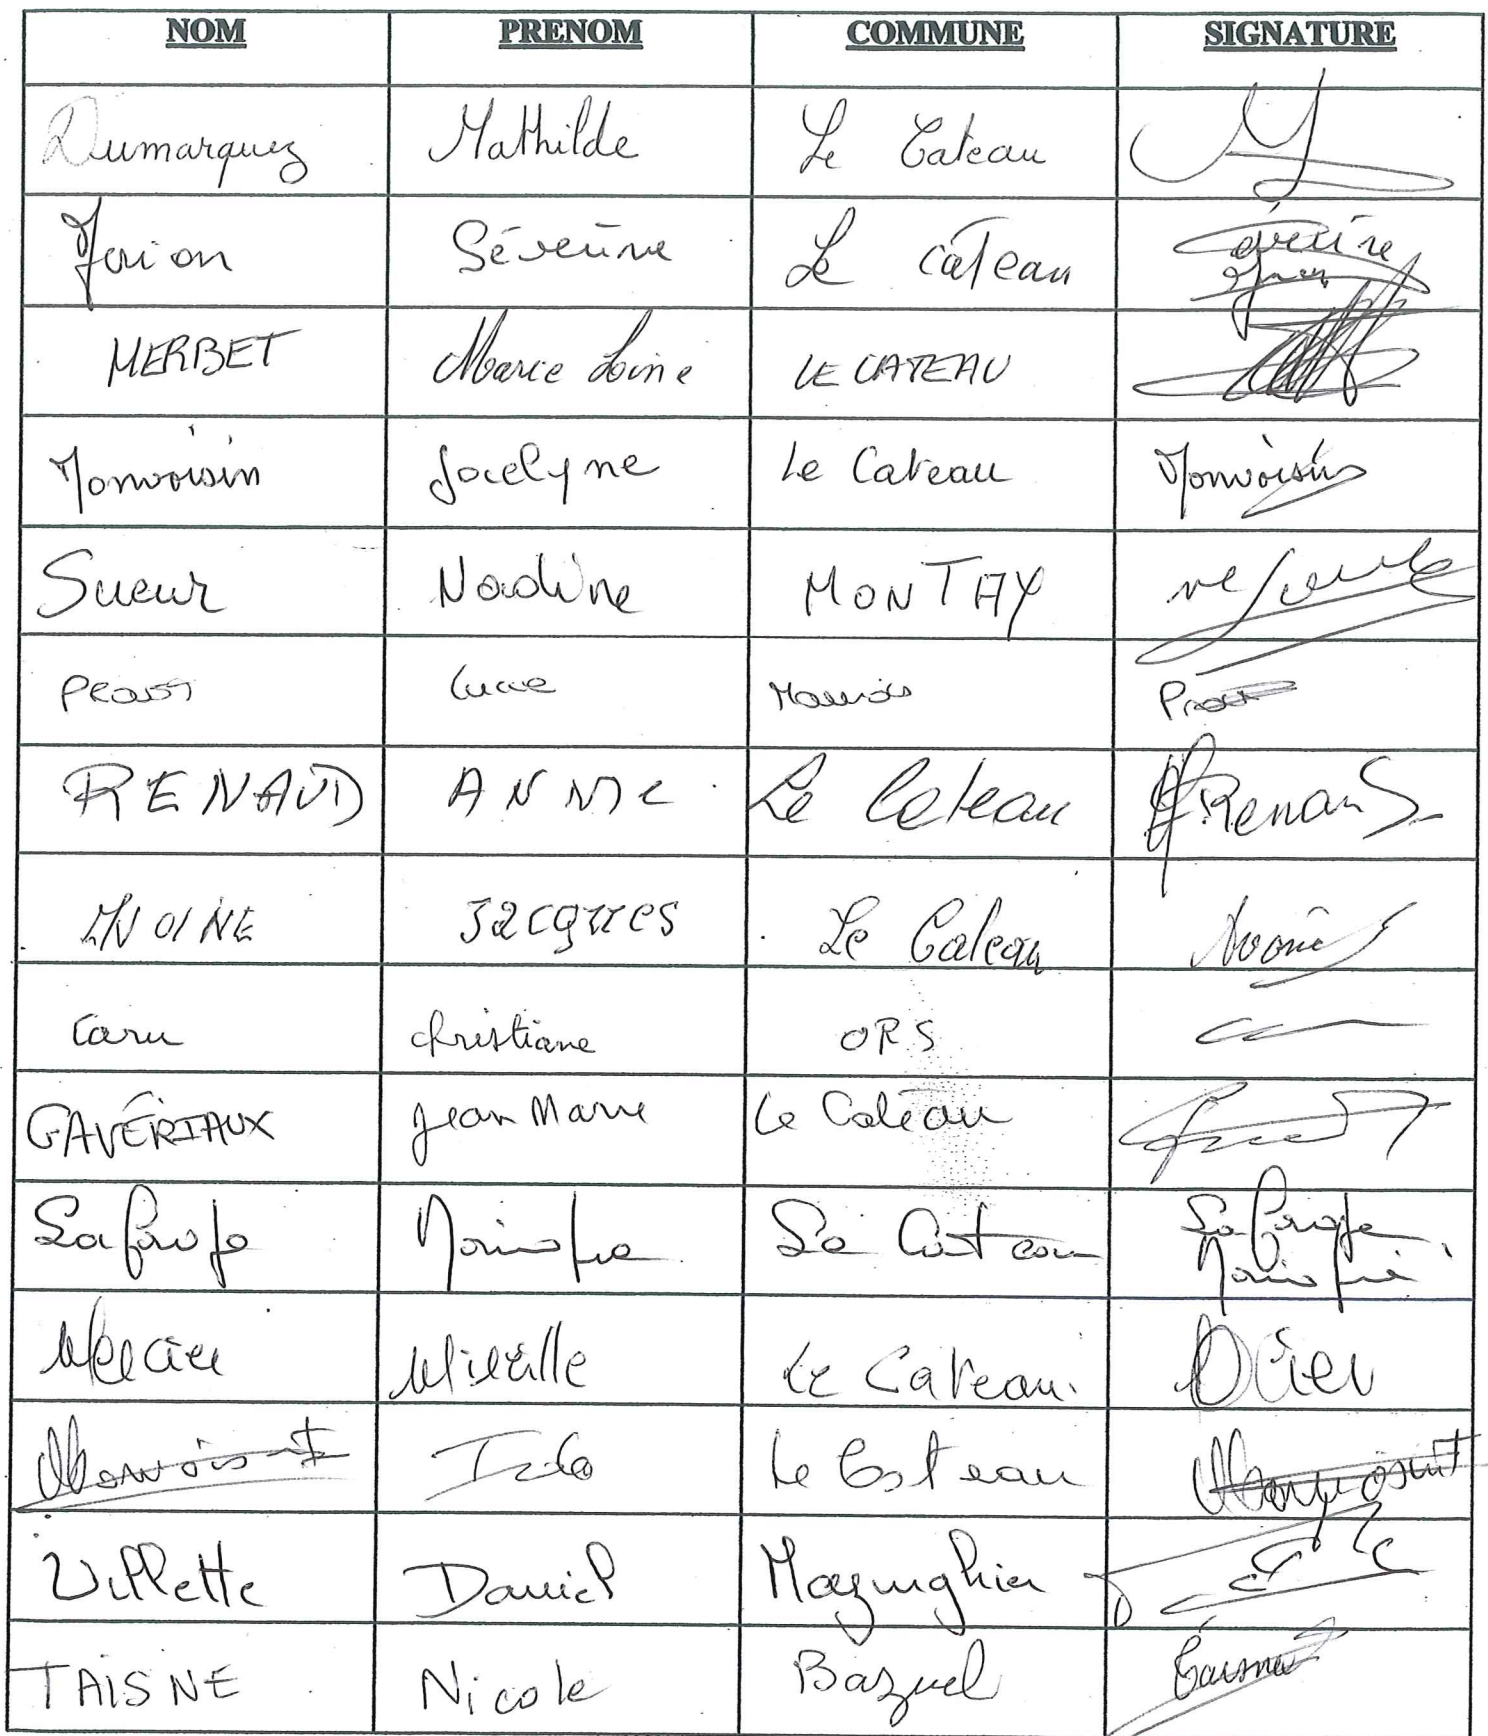 NOM PRENOM COMMUNE SIGNATURE
Dumarquez Mathilde Le Cateau
Séverine Le cateau
MERBET Marie Line LE CATEAU
Monvoisin Jocelyne Le Cateau Monvoisin
Sueur Nadine MONTAY
PROUST Lucie Maurois
RENAUD ANNIE Le Cateau Renaud
MOINE Jacques Le Cateau
Caru christiane ORS
GAVÉRIAUX Jean Marie Le Cateau
Le Cateau
Mireille Le Cateau
Ida Le Cateau
Villette Daniel Mazinghien
TAISNE Nicole Bazuel Taisne